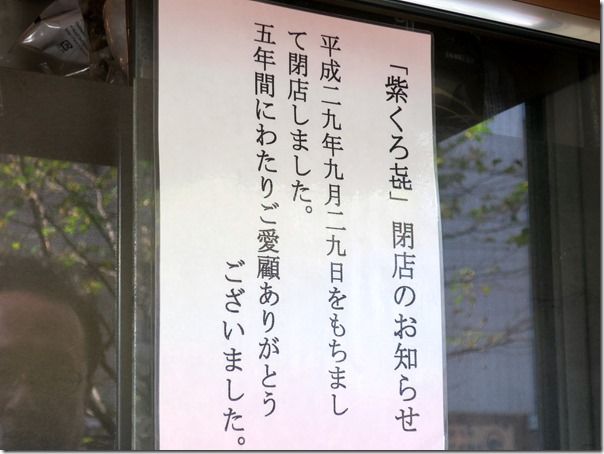 「紫くろ㐂」閉店のお知らせ
平成二九年九月二九日をもちまし
て閉店しました。
五年間にわたりご愛顧ありがとう
ございました。